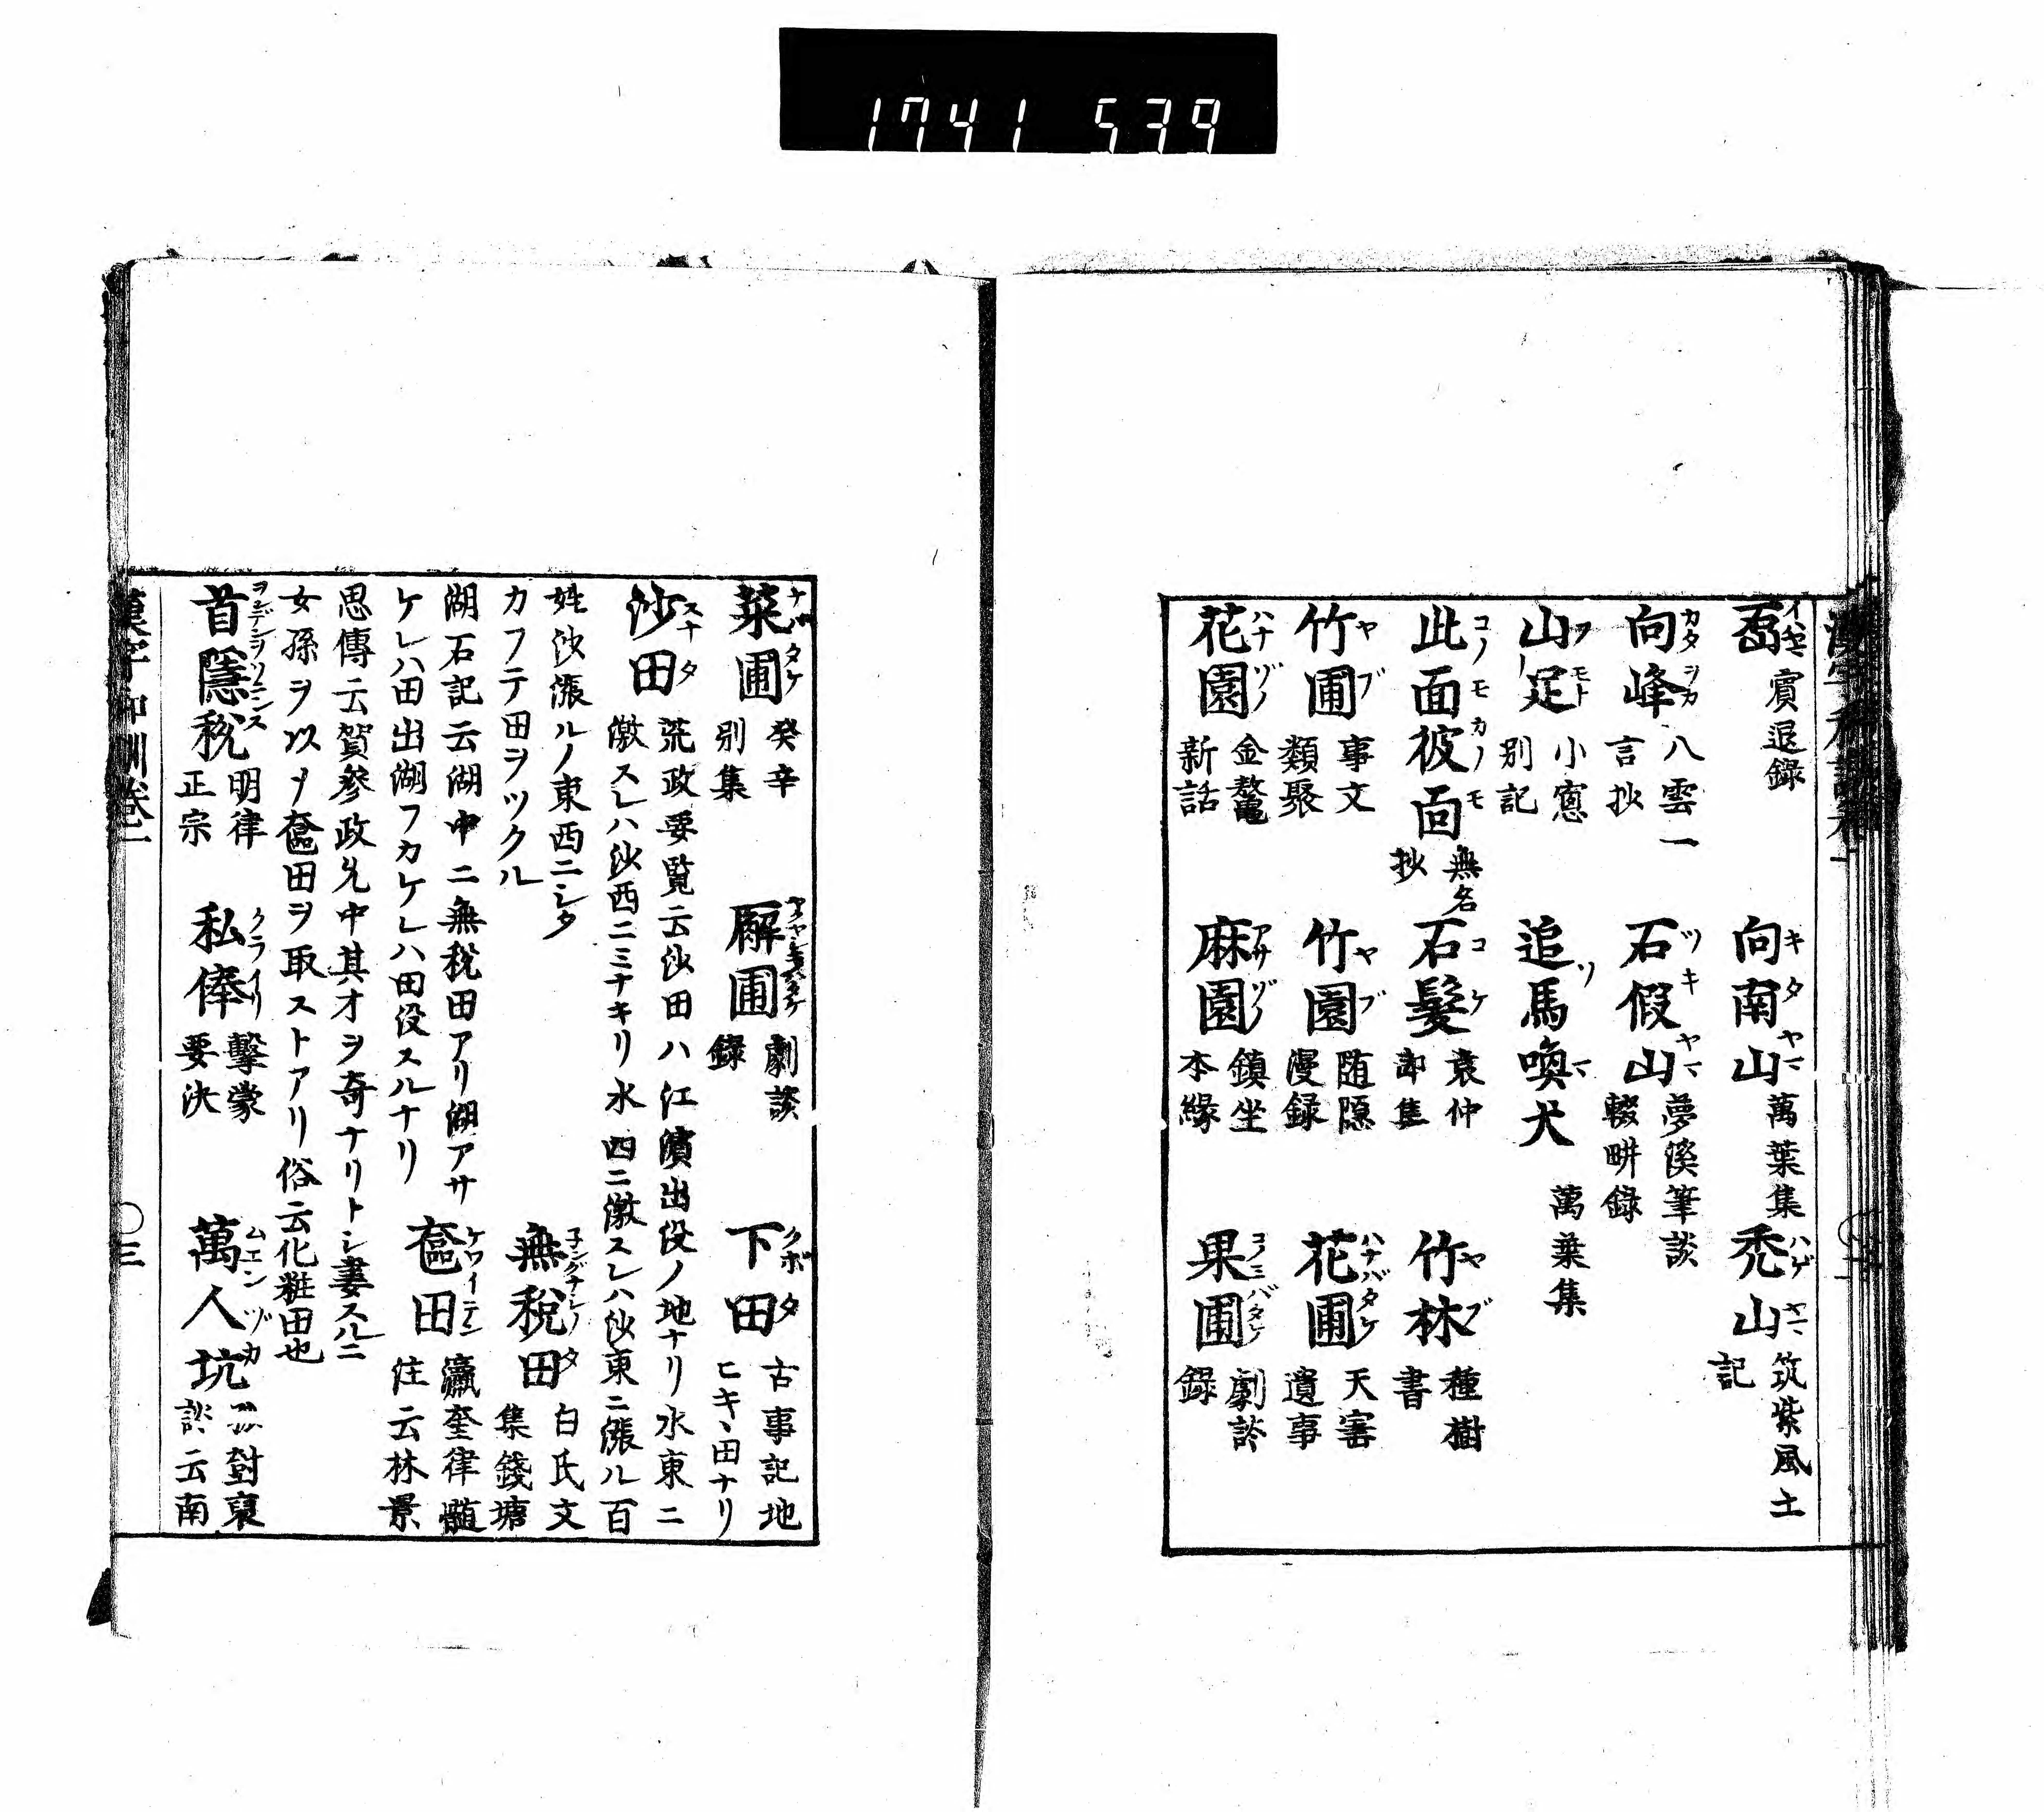 1741 539
向南山 キタヤマ 萬葉集
禿山 ハゲヤマ 筑紫風土記
賓退録
向峰 カタヲカ 八雲一言抄
石假山 ツキヤマ 夢溪筆談 輟畊錄
山足 フモト 小窓別記
追馬喚犬 萬葉集
此面彼面 コノモカノモ 無名抄
石髮 コケ 袁仲郎集
竹林 ヤブ 種樹書
竹圃 ヤブ 事文類聚
竹園 ヤブ 随隠漫録
花圃 ハナバタケ 天寶遺事
花園 ハナゾノ 金鰲新話
麻園 アサヅノ 鎮坐本縁
果圃 コノミバタケ 劇談錄
菜圃 癸辛別集
廨圃 劇談錄
下田 クボタ 古事記地ヒキヽ田ナリ
沙田 スナタ 荒政要覧云沙田ハ江濱出没ノ地ナリ水東ニ
激スレハ沙西ニミナキリ水西ニ激スレハ沙東ニ漲ル百
姓沙漲ルノ東西ニシタ
カフテ田ヲツクル
無税田 白氏文集錢塘
湖石記云湖中ニ無税田アリ湖アサ
ケレハ田出湖フカケレハ田没スルナリ
奩田 ケワイデン 瀛奎律髓注云林景
思傳云賀參政允中其才ヲ奇ナリトシ妻スルニ
女孫ヲ以ス奩田ヲ取ストアリ俗云化粧田也
首隱税 明律正宗
私俸 クライリ 擊蒙要決
萬人坑 ムエンヅカ 對裏談云南
漢字和訓卷一
三